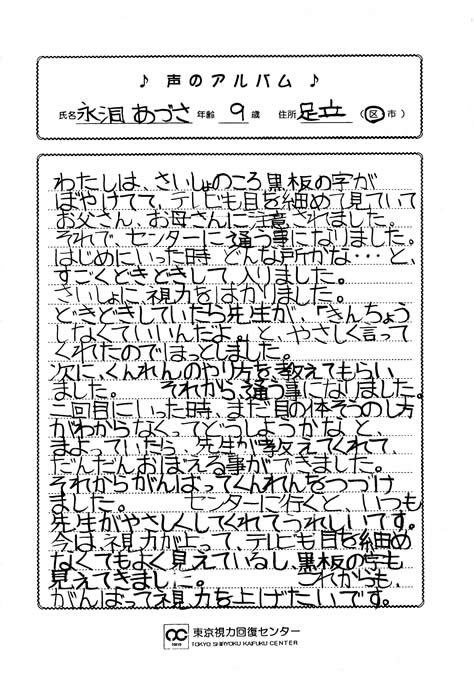 ♪ 声のアルバム ♪
氏名 永沼 あづさ 年齢 9 歳 住所 足立 (区 市)
わたしは、さいしょのころ黒板の字が
ぼやけてて、テレビも目を細めて見ていて
お父さん、お母さんに注意されました。
それで、センターに通う事になりました。
はじめにいった時 どんな所かな・・・と、
すごくどきどきして入りました。
さいしょに、視力をはかりました。
どきどきしていたら先生が、「きんちょう
しなくていいんだよ。」と、やさしく言って
くれたのでほっとしました。
次に、くんれんのやり方を教えてもらい
ました。 それから、通う事になりました。
二回目にいった時、まだ目の体そうのし方
がわからなくってどうしようかなと、
まよっていたら、先生が教えてくれて、
だんだんおぼえる事ができました。
それからがんばってくんれんをつづけ
ました。 センターに行くと、いつも
先生がやさしくしてくれてうれしいです。
今は、視力が上って、テレビも目を細め
なくてもよく見えているし、黒板の字も
見えてきました。 これからも、
がんばって視力を上げたいです。
東京視力回復センター
TOKYO SHIRYOKU KAIFUKU CENTER